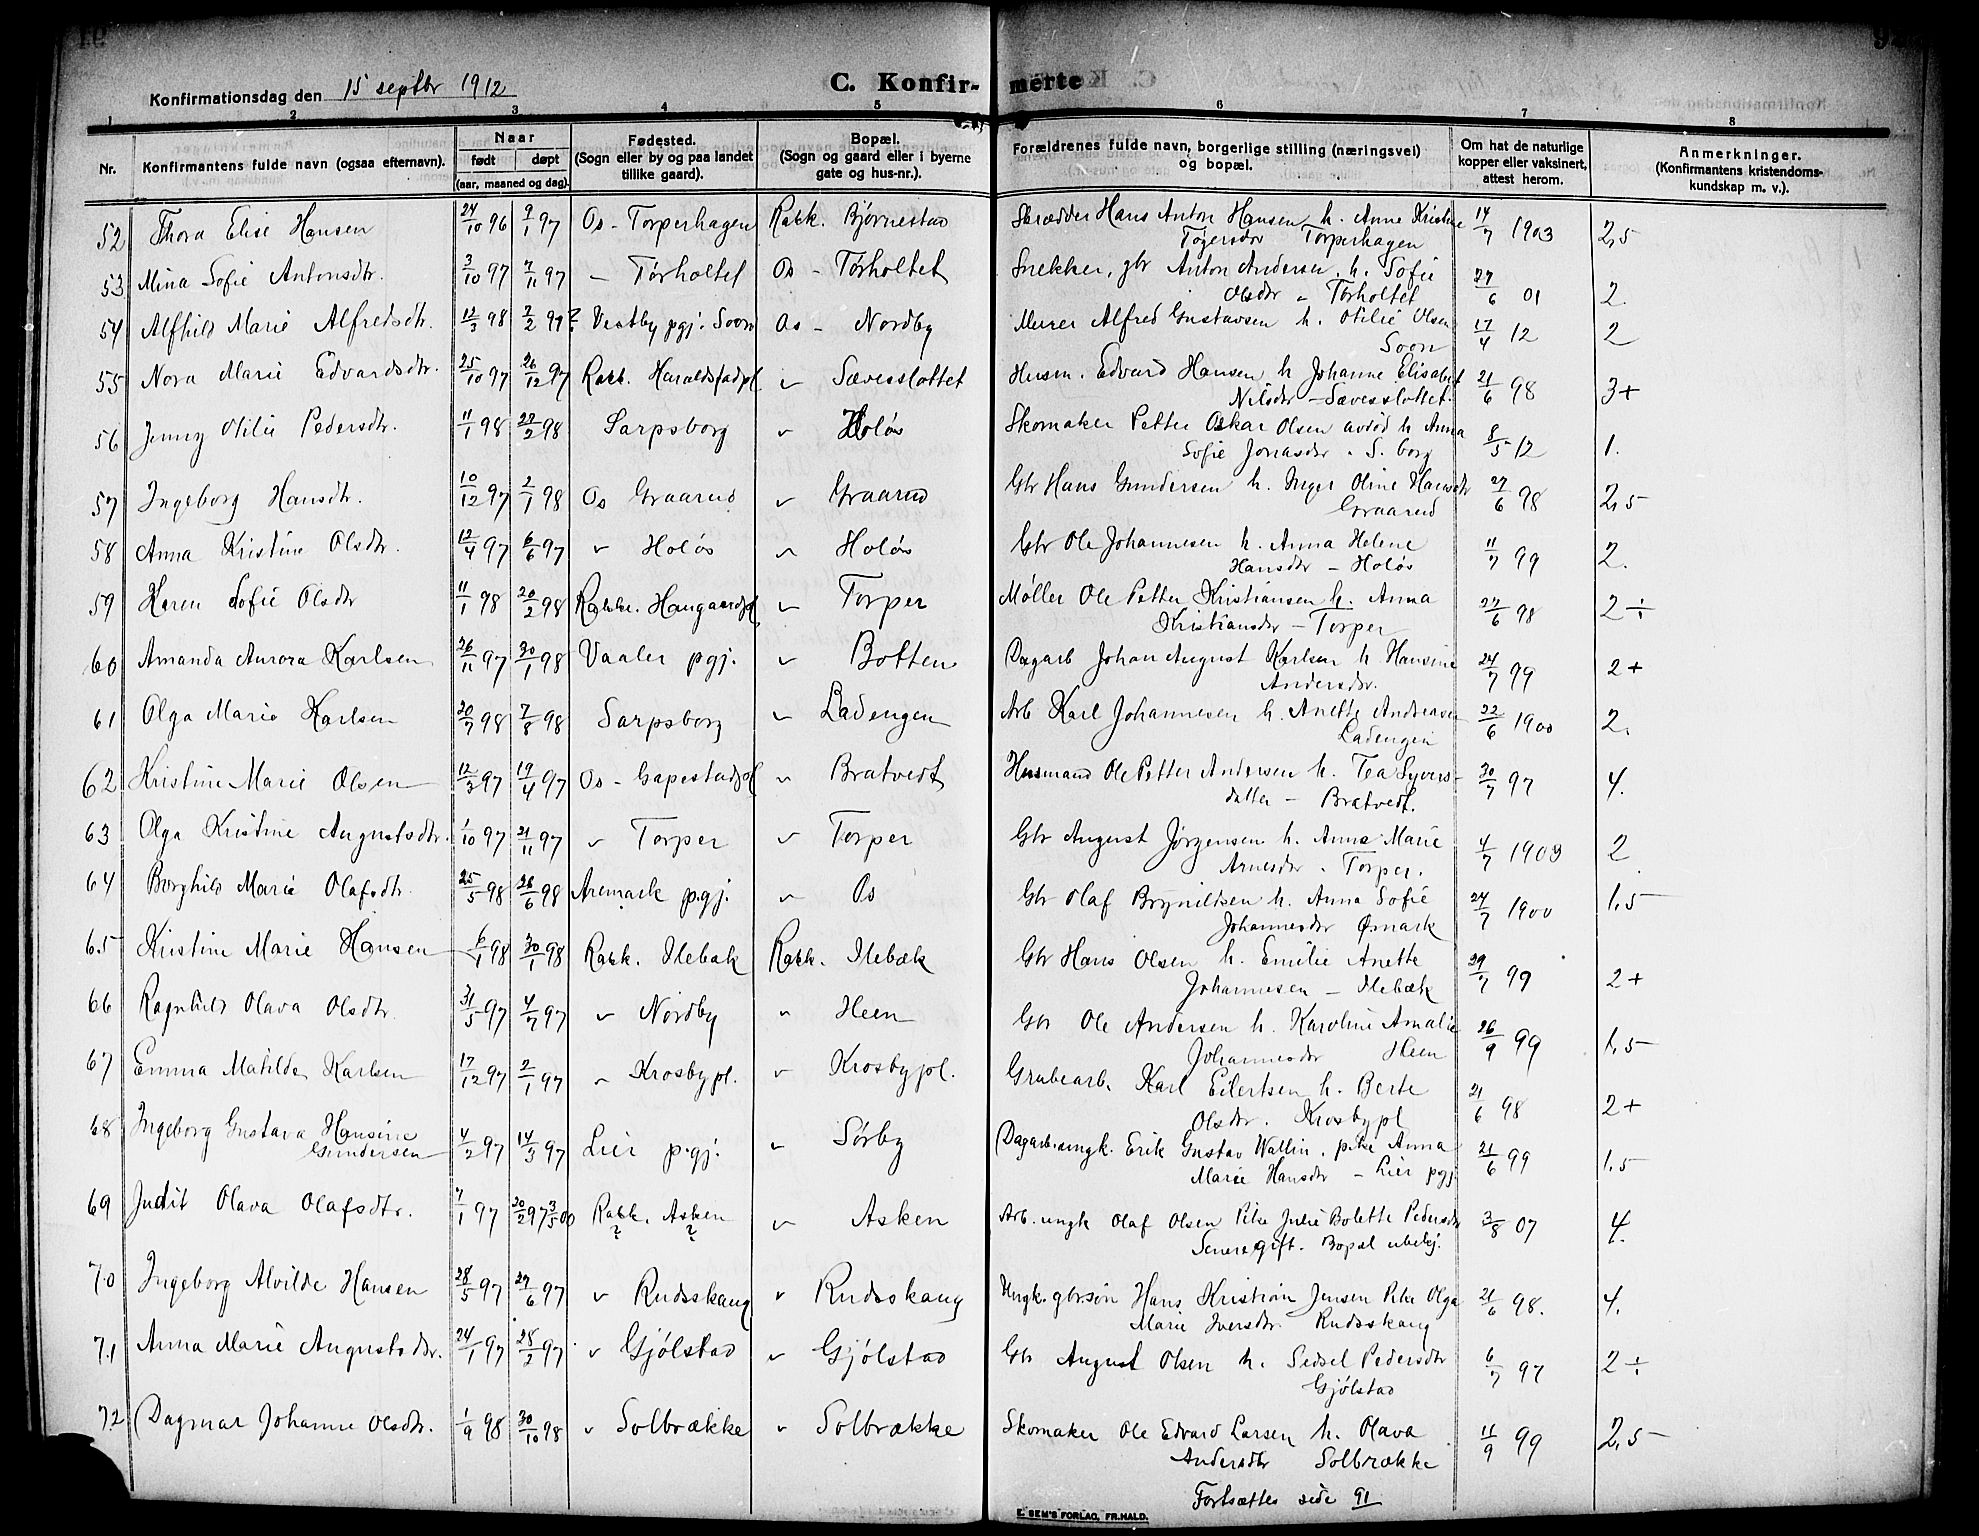 Konfirmationsdag den 15 septbr 1912
C. Konfir- merte
1 2 3 4 5 6 7 8
Nr. Konfirmantens fulde navn (ogsaa efternavn). Naar født døpt (aar, maaned og dag). Fødested. (Sogn eller by og paa landet tillike gaard). Bopæl. (Sogn og gaard eller i byerne gate og hus-nr.). Forældrenes fulde navn, borgerlige stilling (næringsvei) og bopæl. Om hat de naturlige kopper eller vaksinert, attest herom. Anmerkninger. (Konfirmantens kristendoms- kundskap m. v.).
52 Thora Elise Hansen 24/10 96 9/1 97 Os - Torperhagen Rakk. Bjørnestad Skrædder Hans Anton Hansen h. Anne Kristine 14/7 1903 2,5
Torperhagen
53 Mina Sofie Antonsdtr. 3/10 97 7/11 97 – Tørholtet Os - Tørholtet Snekker, gbr Anton Andersen h. Sofie 27/6 01 2.
Olsdtr - Tørholtet
54 Alfhild Marie Alfredsdtr. 12/3 98 7/2 99? Vestby pgj. Soon Os - Nordby Murer Alfred Gustavsen h. Otilie Olsen 17/4 12 2
Soon
55 Nora Marie Edvardsdtr. 25/10 97 26/12 97 Rakk. Haraldstadpl. " Sævesslottet Husm. Edvard Hansen h Johanne Elisabet 21/6 98 3+
Nilsdtr - Sævesslottet.
56 Jenny Otilie Pedersdtr. 11/1 98 22/2 98 Sarpsborg " Holøs Skomaker Petter Oskar Olsen avdød h Anna 8/5 12 1.
Sofie Jonasdtr. S. borg
57 Ingeborg Hansdtr. 10/12 97 2/1 98 Os Graarud " Graarud Gbr Hans Gundersen h. Inger Oline Hansdtr 27/6 98 2,5
Graarud
58 Anna Kristine Olsdtr. 12/4 97 6/6 97 " Holøs " Holøs Gbr Ole Johannesen h. Anna Helene 11/7 99 2.
Hansdtr – Holøs
59 Karen Sofie Olsdtr 11/1 98 20/2 98 Rakke. Haugaardpl. " Torper Møller Ole Petter Kristiansen h. Anna 27/6 98 2÷
Kristiansdtr – Torper
60 Amanda Aurora Karlsen 26/11 97 30/1 98 Vaaler pgj. " Botten Dagarb Johan August Karlsen h Hansine 24/7 99 2+
Andersdtr.
61 Olga Marie Karlsen 20/7 98 7/8 98 Sarpsborg " Ladengen Arb Karl Johannesen h. Anette Andreasen 22/6 1900 2.
Ladengen
62 Kristine Marie Olsen 12/3 97 19/4 97 Os - Gapestadpl " Bratvedt Husmand Ole Petter Andersen h. Tea Syvers- 30/7 97 4.
datter – Bratvedt.
63 Olga Kristine Augustsdtr. 1/10 97 21/11 97 " Torper " Torper Gbr August Jørgensen h. Anne Marie 4/7 1903 2
Arnesdtr. Torper.
64 Borghild Marie Olafsdtr. 25/5 98 26/6 98 Aremark pgj. " Os Gbr Olaf Brynildsen h. Anna Sofie 24/7 1900 1,5
Johannesdtr Ømark
65 Kristine Marie Hansen 6/1 98 30/1 98 Rakk. Ilebæk Rakk. Ilebæk Gbr Hans Olsen h. Emilie Anette 29/7 99 2+
Johannesen – Ilebæk
66 Ragnhild Olava Olsdtr. 31/5 97 4/7 97 " Nordby " Heen Gbr Ole Andersen h. Karoline Amalie 26/9 99 1,5
Johannesdtr Heen
67 Emma Matilde Karlsen 17/12 97 2/1 97 " Krosbypl. " Krosbypl. Grubearb. Karl Eilertsen h. Berte 21/6 98 2+
Olsdtr. Krosbypl
68 Ingeborg Gustava Hansine 4/2 97 14/3 97 Lier pgj. " Sørby Dagarb.ungk. Erik Gustav Wallin, pike Anna 21/6 99 1,5
Gundersen Marie Hansdtr – Lier pgj.
69 Judit Olava Olafsdtr. 7/1 97 20/2 97 3/5 00 Rakk. Asken " Asken Arb. ungk Olaf Olsen Pike Julie Bolette Pedersdtr 3/8 07 4.
? ? Senere gift. Bopæl ubekj.
70 Ingeborg Alvilde Hansen 28/5 97 27/6 97 " Rudsskaug " Rudsskaug Ungk. gbrsøn Hans Kristian Jensen Pike Olga 21/6 98. 4.
Marie Iversdtr. Rudsskaug
71 Anna Marie Augustsdtr. 24/1 97 28/2 97 " Gjølstad " Gjølstad Gbr August Olsen h. Sedsel Pedersdtr 6/7 97 2÷
Gjølstad
72 Dagmar Johanne Olsdtr. 1/9 98 30/10 98 " Solbrække " Solbrække Skomaker Ole Edvard Larsen h. Olava 11/9 99 2,5
Andersdtr Solbrække
Fortsættes side 91
E. SEM'S FORLAG, FR.HALD.